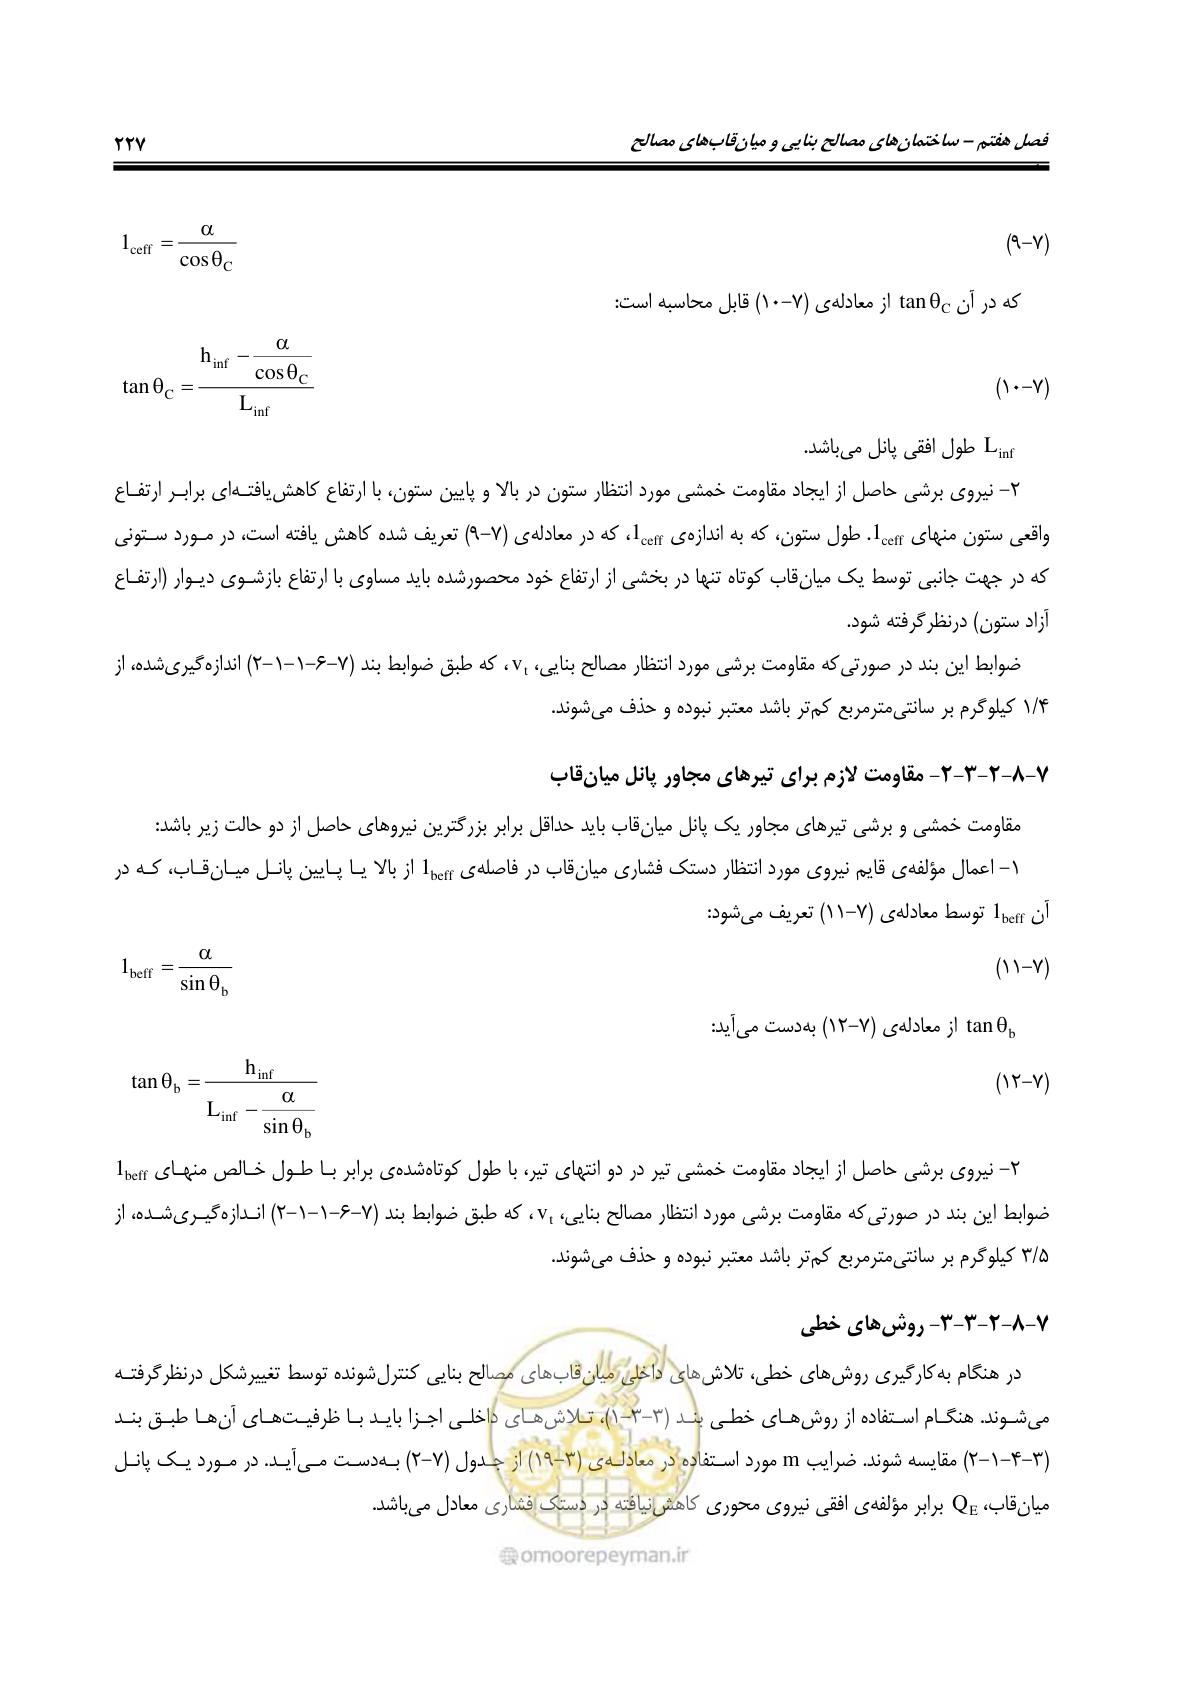 فصل هفتم – ساختمان‌های مصالح بنایی و میان‌قاب‌های مصالح ۲۲۷
(۷-۹) l_ceff = α / cos θ_C
که در آن tan θ_C از معادله‌ی (۷-۱۰) قابل محاسبه است:
(۷-۱۰) tan θ_C = (h_inf − α / cos θ_C) / L_inf
L_inf طول افقی پانل می‌باشد.
۲- نیروی برشی حاصل از ایجاد مقاومت خمشی مورد انتظار ستون در بالا و پایین ستون، با ارتفاع کاهش‌یافته‌ای برابر ارتفاع
واقعی ستون منهای l_ceff. طول ستون، که به اندازه‌ی l_ceff، که در معادله‌ی (۷-۹) تعریف شده کاهش یافته است، در مورد ستونی
که در جهت جانبی توسط یک میان‌قاب کوتاه تنها در بخشی از ارتفاع خود محصورشده باید مساوی با ارتفاع بازشوی دیوار (ارتفاع
آزاد ستون) درنظرگرفته شود.
ضوابط این بند در صورتی‌که مقاومت برشی مورد انتظار مصالح بنایی، v_t، که طبق ضوابط بند (۷-۶-۱-۱-۲) اندازه‌گیری‌شده، از
۱/۴ کیلوگرم بر سانتی‌مترمربع کم‌تر باشد معتبر نبوده و حذف می‌شوند.
۷-۸-۲-۳-۲- مقاومت لازم برای تیرهای مجاور پانل میان‌قاب
مقاومت خمشی و برشی تیرهای مجاور یک پانل میان‌قاب باید حداقل برابر بزرگترین نیروهای حاصل از دو حالت زیر باشد:
۱- اعمال مؤلفه‌ی قایم نیروی مورد انتظار دستک فشاری میان‌قاب در فاصله‌ی l_beff از بالا یا پایین پانل میان‌قاب، که در
آن l_beff توسط معادله‌ی (۷-۱۱) تعریف می‌شود:
(۷-۱۱) l_beff = α / sin θ_b
tan θ_b از معادله‌ی (۷-۱۲) به‌دست می‌آید:
(۷-۱۲) tan θ_b = h_inf / (L_inf − α / sin θ_b)
۲- نیروی برشی حاصل از ایجاد مقاومت خمشی تیر در دو انتهای تیر، با طول کوتاه‌شده‌ی برابر با طول خالص منهای l_beff
ضوابط این بند در صورتی‌که مقاومت برشی مورد انتظار مصالح بنایی، v_t، که طبق ضوابط بند (۷-۶-۱-۱-۲) اندازه‌گیری‌شده، از
۳/۵ کیلوگرم بر سانتی‌مترمربع کم‌تر باشد معتبر نبوده و حذف می‌شوند.
۷-۸-۲-۳-۳- روش‌های خطی
در هنگام به‌کارگیری روش‌های خطی، تلاش‌های داخلی میان‌قاب‌های مصالح بنایی کنترل‌شونده توسط تغییرشکل درنظرگرفته
می‌شوند. هنگام استفاده از روش‌های خطی بند (۳-۳-۱)، تلاش‌های داخلی اجزا باید با ظرفیت‌های آن‌ها طبق بند
(۳-۴-۱-۲) مقایسه شوند. ضرایب m مورد استفاده در معادله‌ی (۳-۱۹) از جدول (۷-۲) به‌دست می‌آید. در مورد یک پانل
میان‌قاب، Q_E برابر مؤلفه‌ی افقی نیروی محوری کاهش‌نیافته در دستک فشاری معادل می‌باشد.
امور پیمان
@omoorepeyman.ir